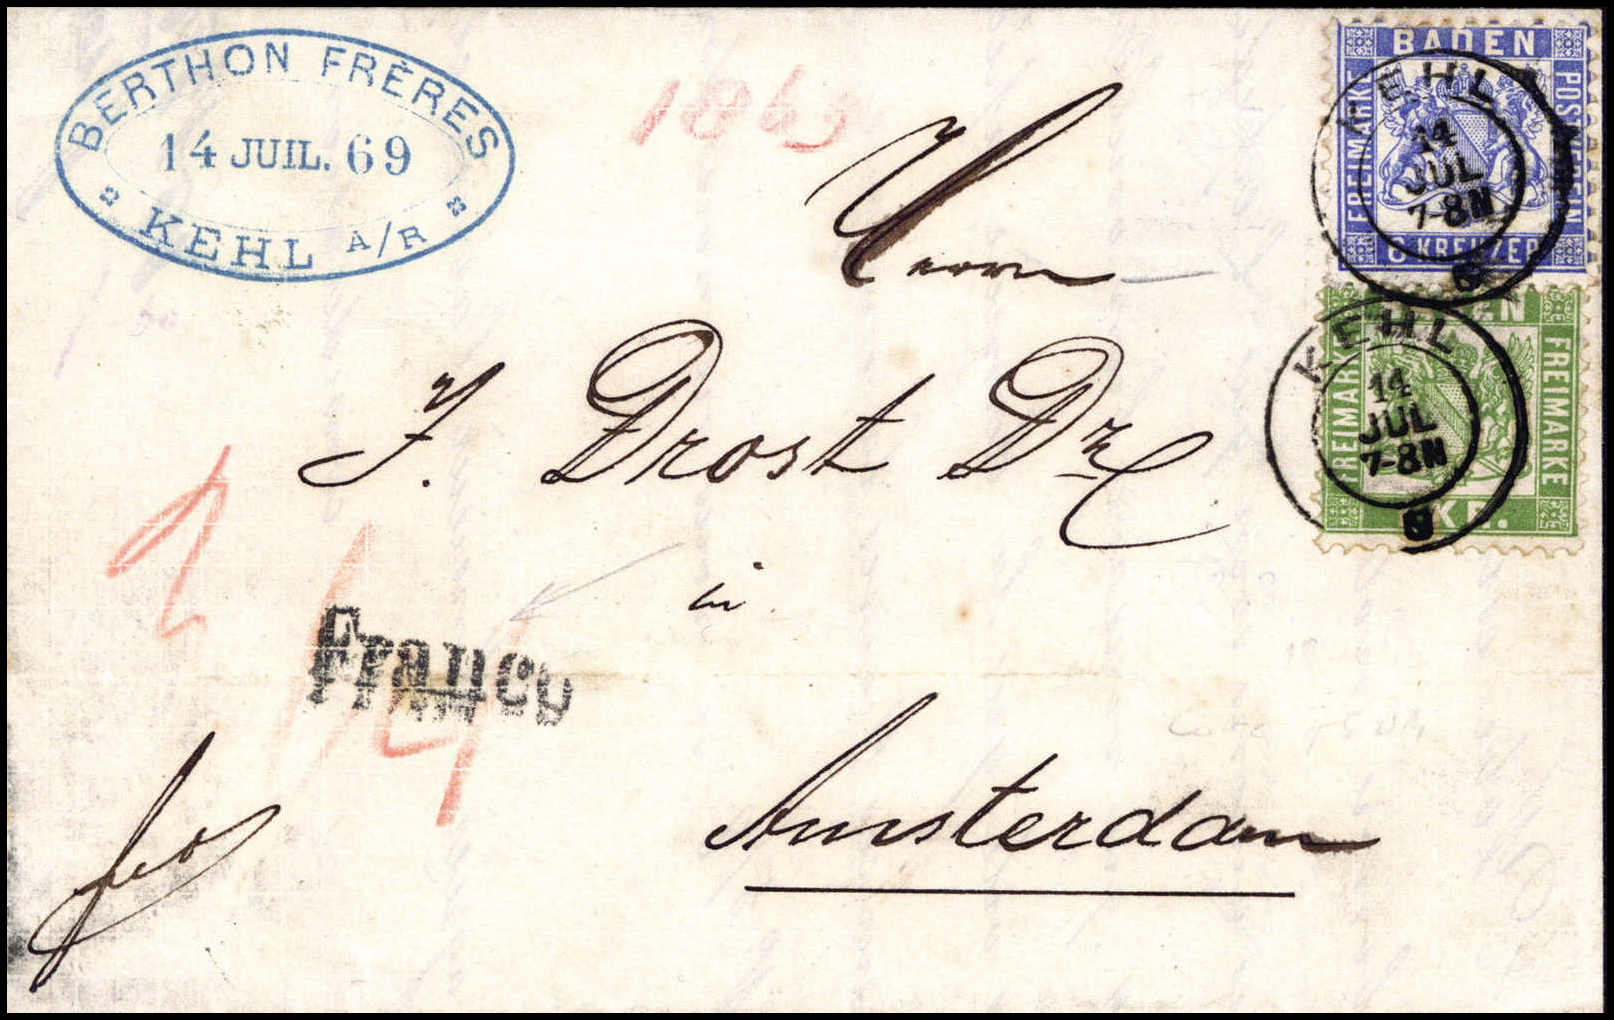 BERTHON FRÈRES
14 JUIL. 69
KEHL A/R
1869
BADEN
FREIMARKE
POSTVEREIN
6 KREUZER
KEHL
14
JUL
7-8N
FREIMARKE
FREIMARKE
KR.
KEHL
14
JUL
7-8N
Herrn
J. Drost
in
Franco
Amsterdam
fco